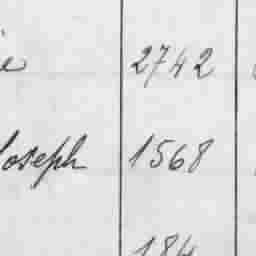 2742
Joseph 1568
184